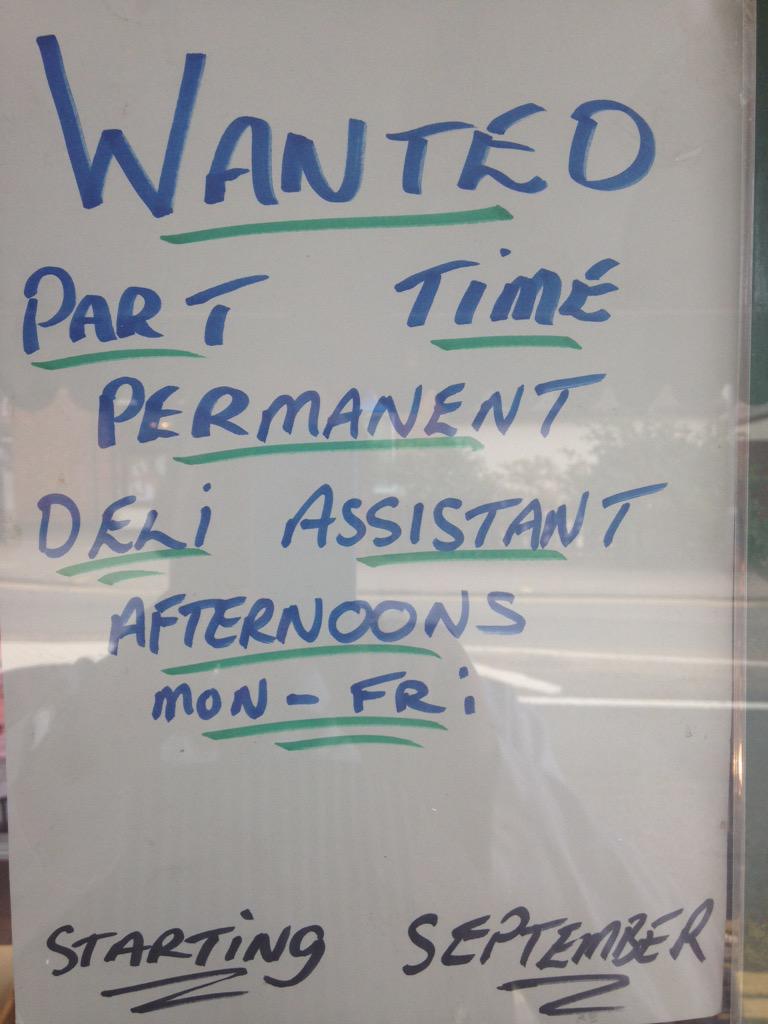 WANTED
PART TIME
PERMANENT
DELi ASSISTANT
AFTERNOONS
MON - FRi
STARTiNg SEPTEMBER